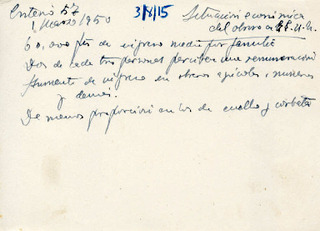 Criterio 57
1, Marzo/950
3/8/15
Situación económica
del obrero en EE.UU.
60,000 pts de ingreso medio por familia
Dos de cada tres personas perciben una remuneración
Aumento de ingreso en obreros agícolas, mineros
y demás.
De menos proporción en los de cuello y corbata